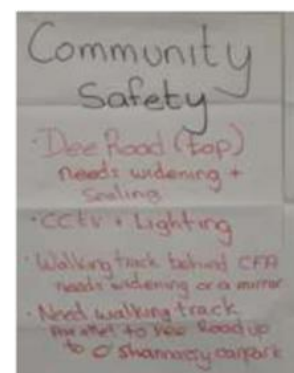 Community
Safety
· Dee Road (top)
needs widening +
Sealing
· CCTV + Lighting
· Walking track behind CFA
needs widening or a mirror
· Need walking track
Parallel to New Road up
to O'Shannassy carpark